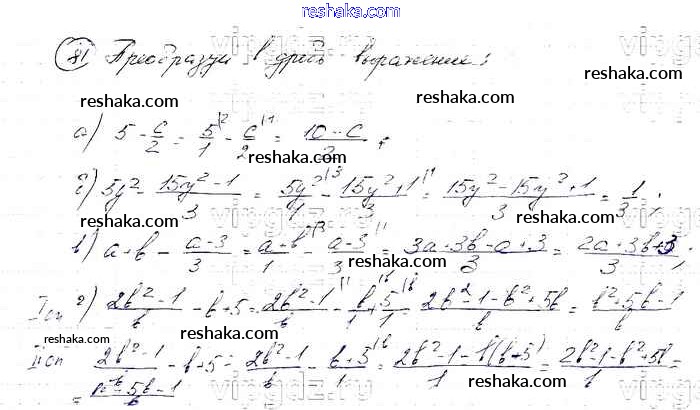 reshaka.com
81 Преобразуй в дробь выражение:
reshaka.com
reshaka.com reshaka.com
а) 5 - c/2 = 5/1 - c/2 = 10-c/2;
reshaka.com
б) 5y² - 15y²-1/3 = 5y²/1 - 15y²+1/3 = 15y²-15y²+1/3 = 1/3;
в) a+b - a-3/3 = a+b/1 - a-3/3 = 3a+3b-a+3/3 = 2a+3b+3/3;
reshaka.com
I сп г) 2b²-1/b - b+5 = 2b²-1/b - b+5/1 = 2b²-1-b²+5b/b = b²+5b-1/b
reshaka.com
reshaka.com
II сп 2b²-1/b - b+5 = 2b²-1/b - b+5/1 = 2b²-1-b(b+5)/1 = 2b²-1-b²+5b/1 =
reshaka.com
= b²-5b-1/b
reshaka.com